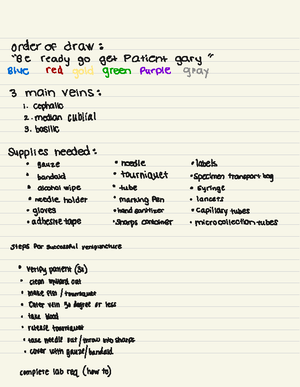 order of draw:
"Be ready go get Patient gary"
Blue red gold green Purple gray
3 main veins:
1. cephalic
2. median cubital
3. basilic
Supplies needed:
• gauze
• bandaid
• alcohol wipe
• needle holder
• gloves
• adhesive tape
• needle
• tourniquet
• tube
• marking Pen
• hand sanitizer
• sharps container
• labels
• specimen transport bag
• syringe
• lancets
• capillary tubes
• microcollection tubes
Steps for successful venipuncture
• verify patient (3x)
• clean upward out
• make fist / tourniquet
• Enter vein 30 degree or less
• take blood
• release tourniquet
• take needle out / throw into sharps
• cover with gauze/bandaid
complete lab req (how to)